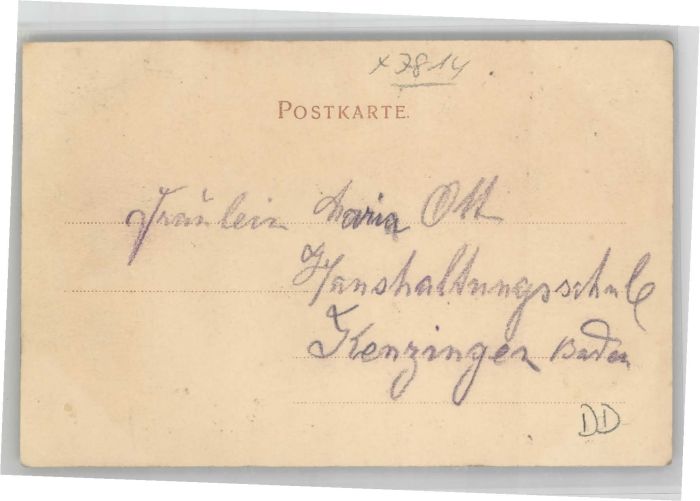 x7814
POSTKARTE.
Fräulein Maria Ott
Haushaltungsschule
Kenzingen Baden
DD